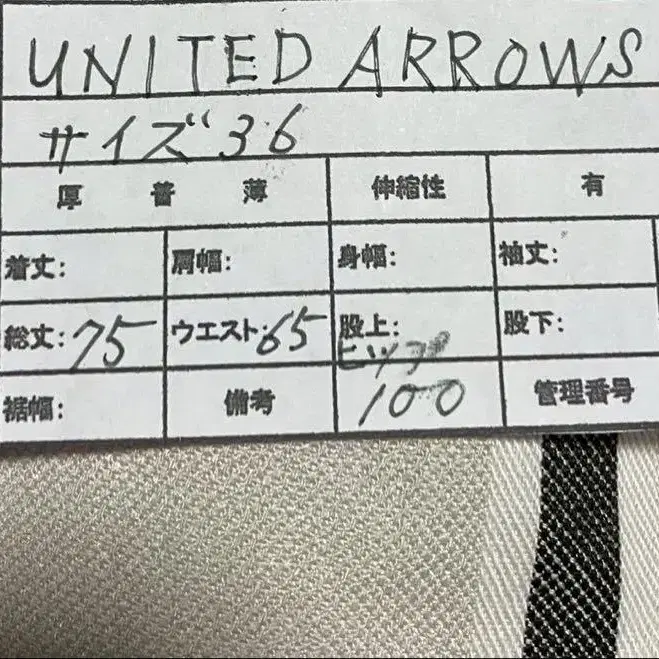 UNITED ARROWS
サイズ 36
厚 普 薄 伸縮性 有
着丈: 肩幅: 身幅: 袖丈:
総丈: 75 ウエスト: 65 股上: 股下:
ヒップ
裾幅: 備考 100 管理番号